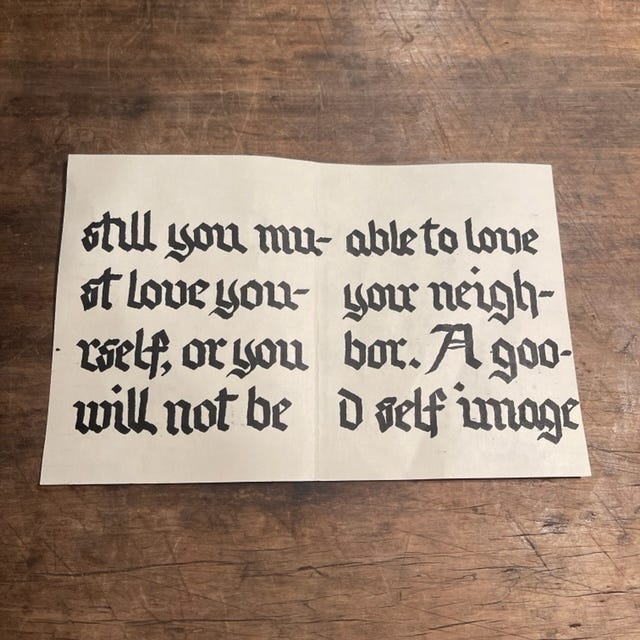 still you mu-
st love you-
rself, or you
will not be
able to love
your neigh-
bor. A goo-
d self image